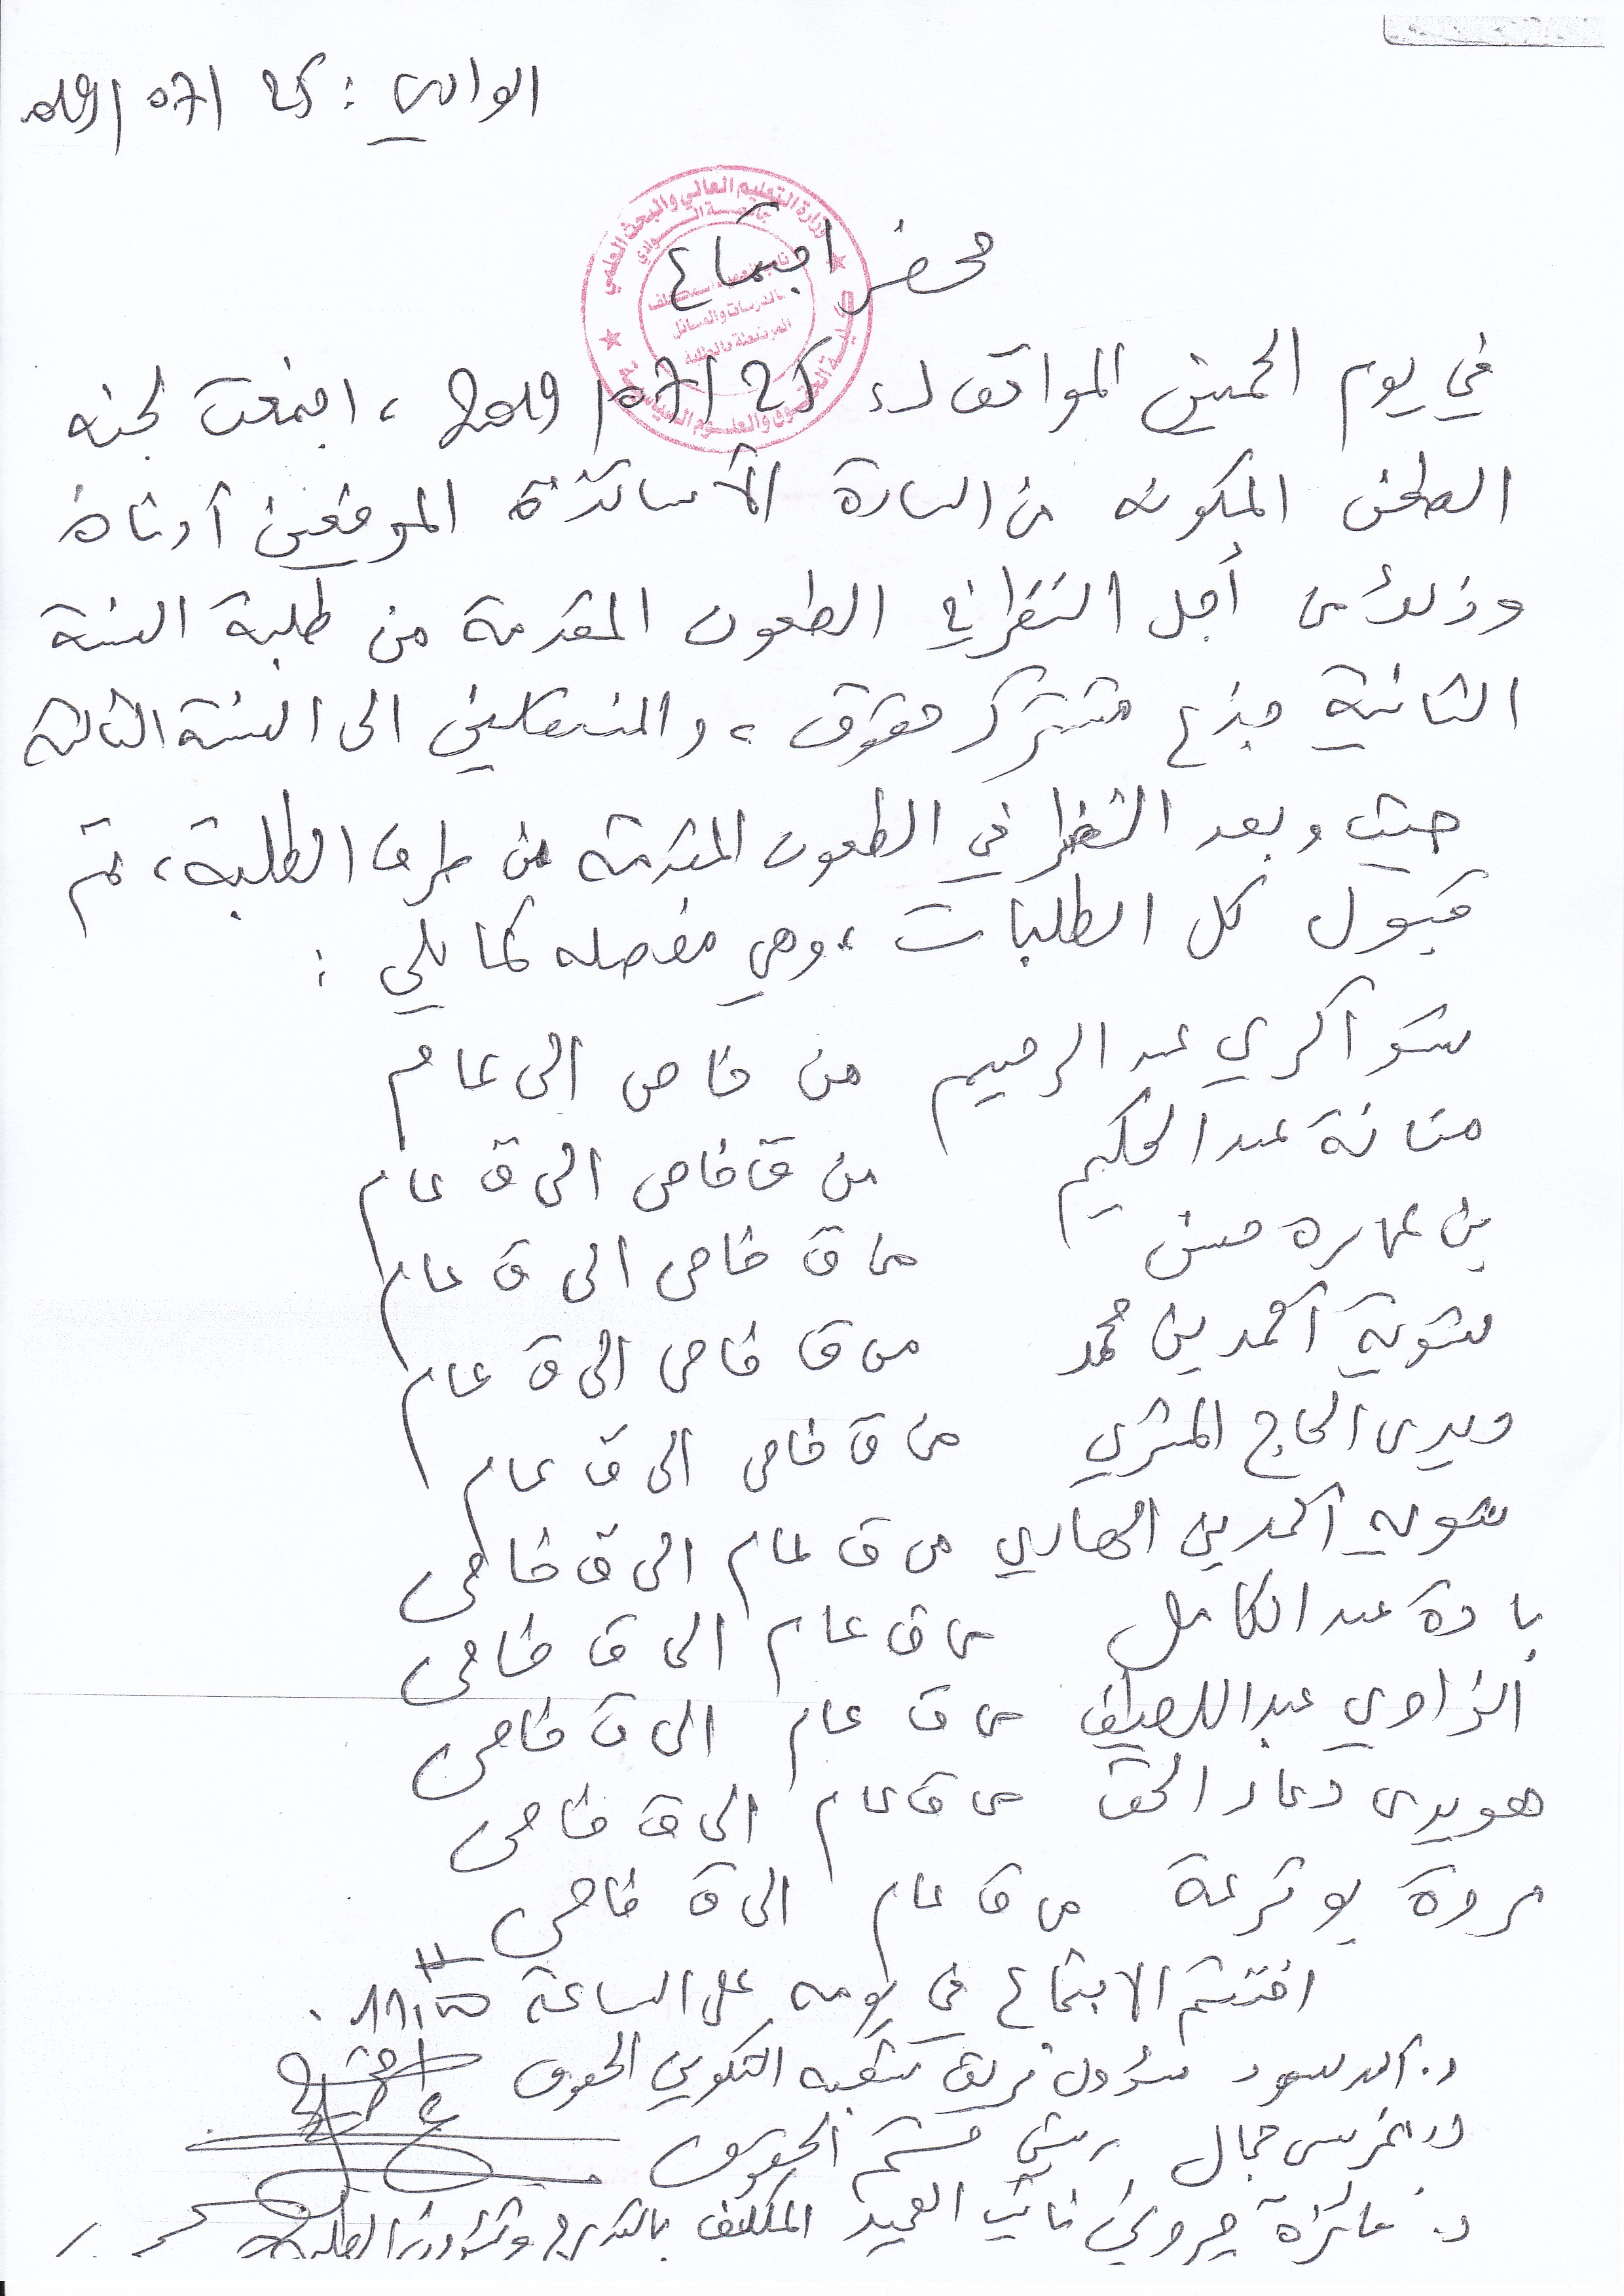 الوادي : 25 /07/ 2019
محضر اجتماع
في يوم الخميس الموافق لـ 25 /07/ 2019 ، اجتمعت لجنة
الطعن المكونة من السادة الأساتذة الموقعين أدناه
وذلك من أجل النظر في الطعون المقدمة من طلبة السنة
الثانية جذع مشترك حقوق ، والمنتقلين الى السنة الثالثة
حيث وبعد النظر في الطعون المقدمة من طرف الطلبة ، تم
قبول كل الطلبات ، وهي مفصلة كما يلي :
شواكري عبد الرحيم من خاص الى عام
منانة عبد الحكيم من ق خاص الى ق عام
بن عمارة حسن من ق خاص الى ق عام
شوية أحمد بن محمد من ق خاص الى ق عام
الحاج من ق خاص الى ق عام
شوية أحمد بن الهادي من ق عام الى ق خاص
بادة عبد الكامل من ق عام الى ق خاص
الزاوي عبد اللطيف من ق عام الى ق خاص
هويدى دعاء الحق من ق عام الى ق خاص
مروة بوترعة من ق عام الى ق خاص
اختتم الاجتماع في يومه على الساعة 11
د. مسؤول فريق شعبة التكوين الحقوق
جمال رئيس قسم الحقوق
د. فائزة جروني نائب العميد المكلف بالتدريس وشؤون الطلبة
وزارة التعليم العالي والبحث العلمي
جامعة الوادي